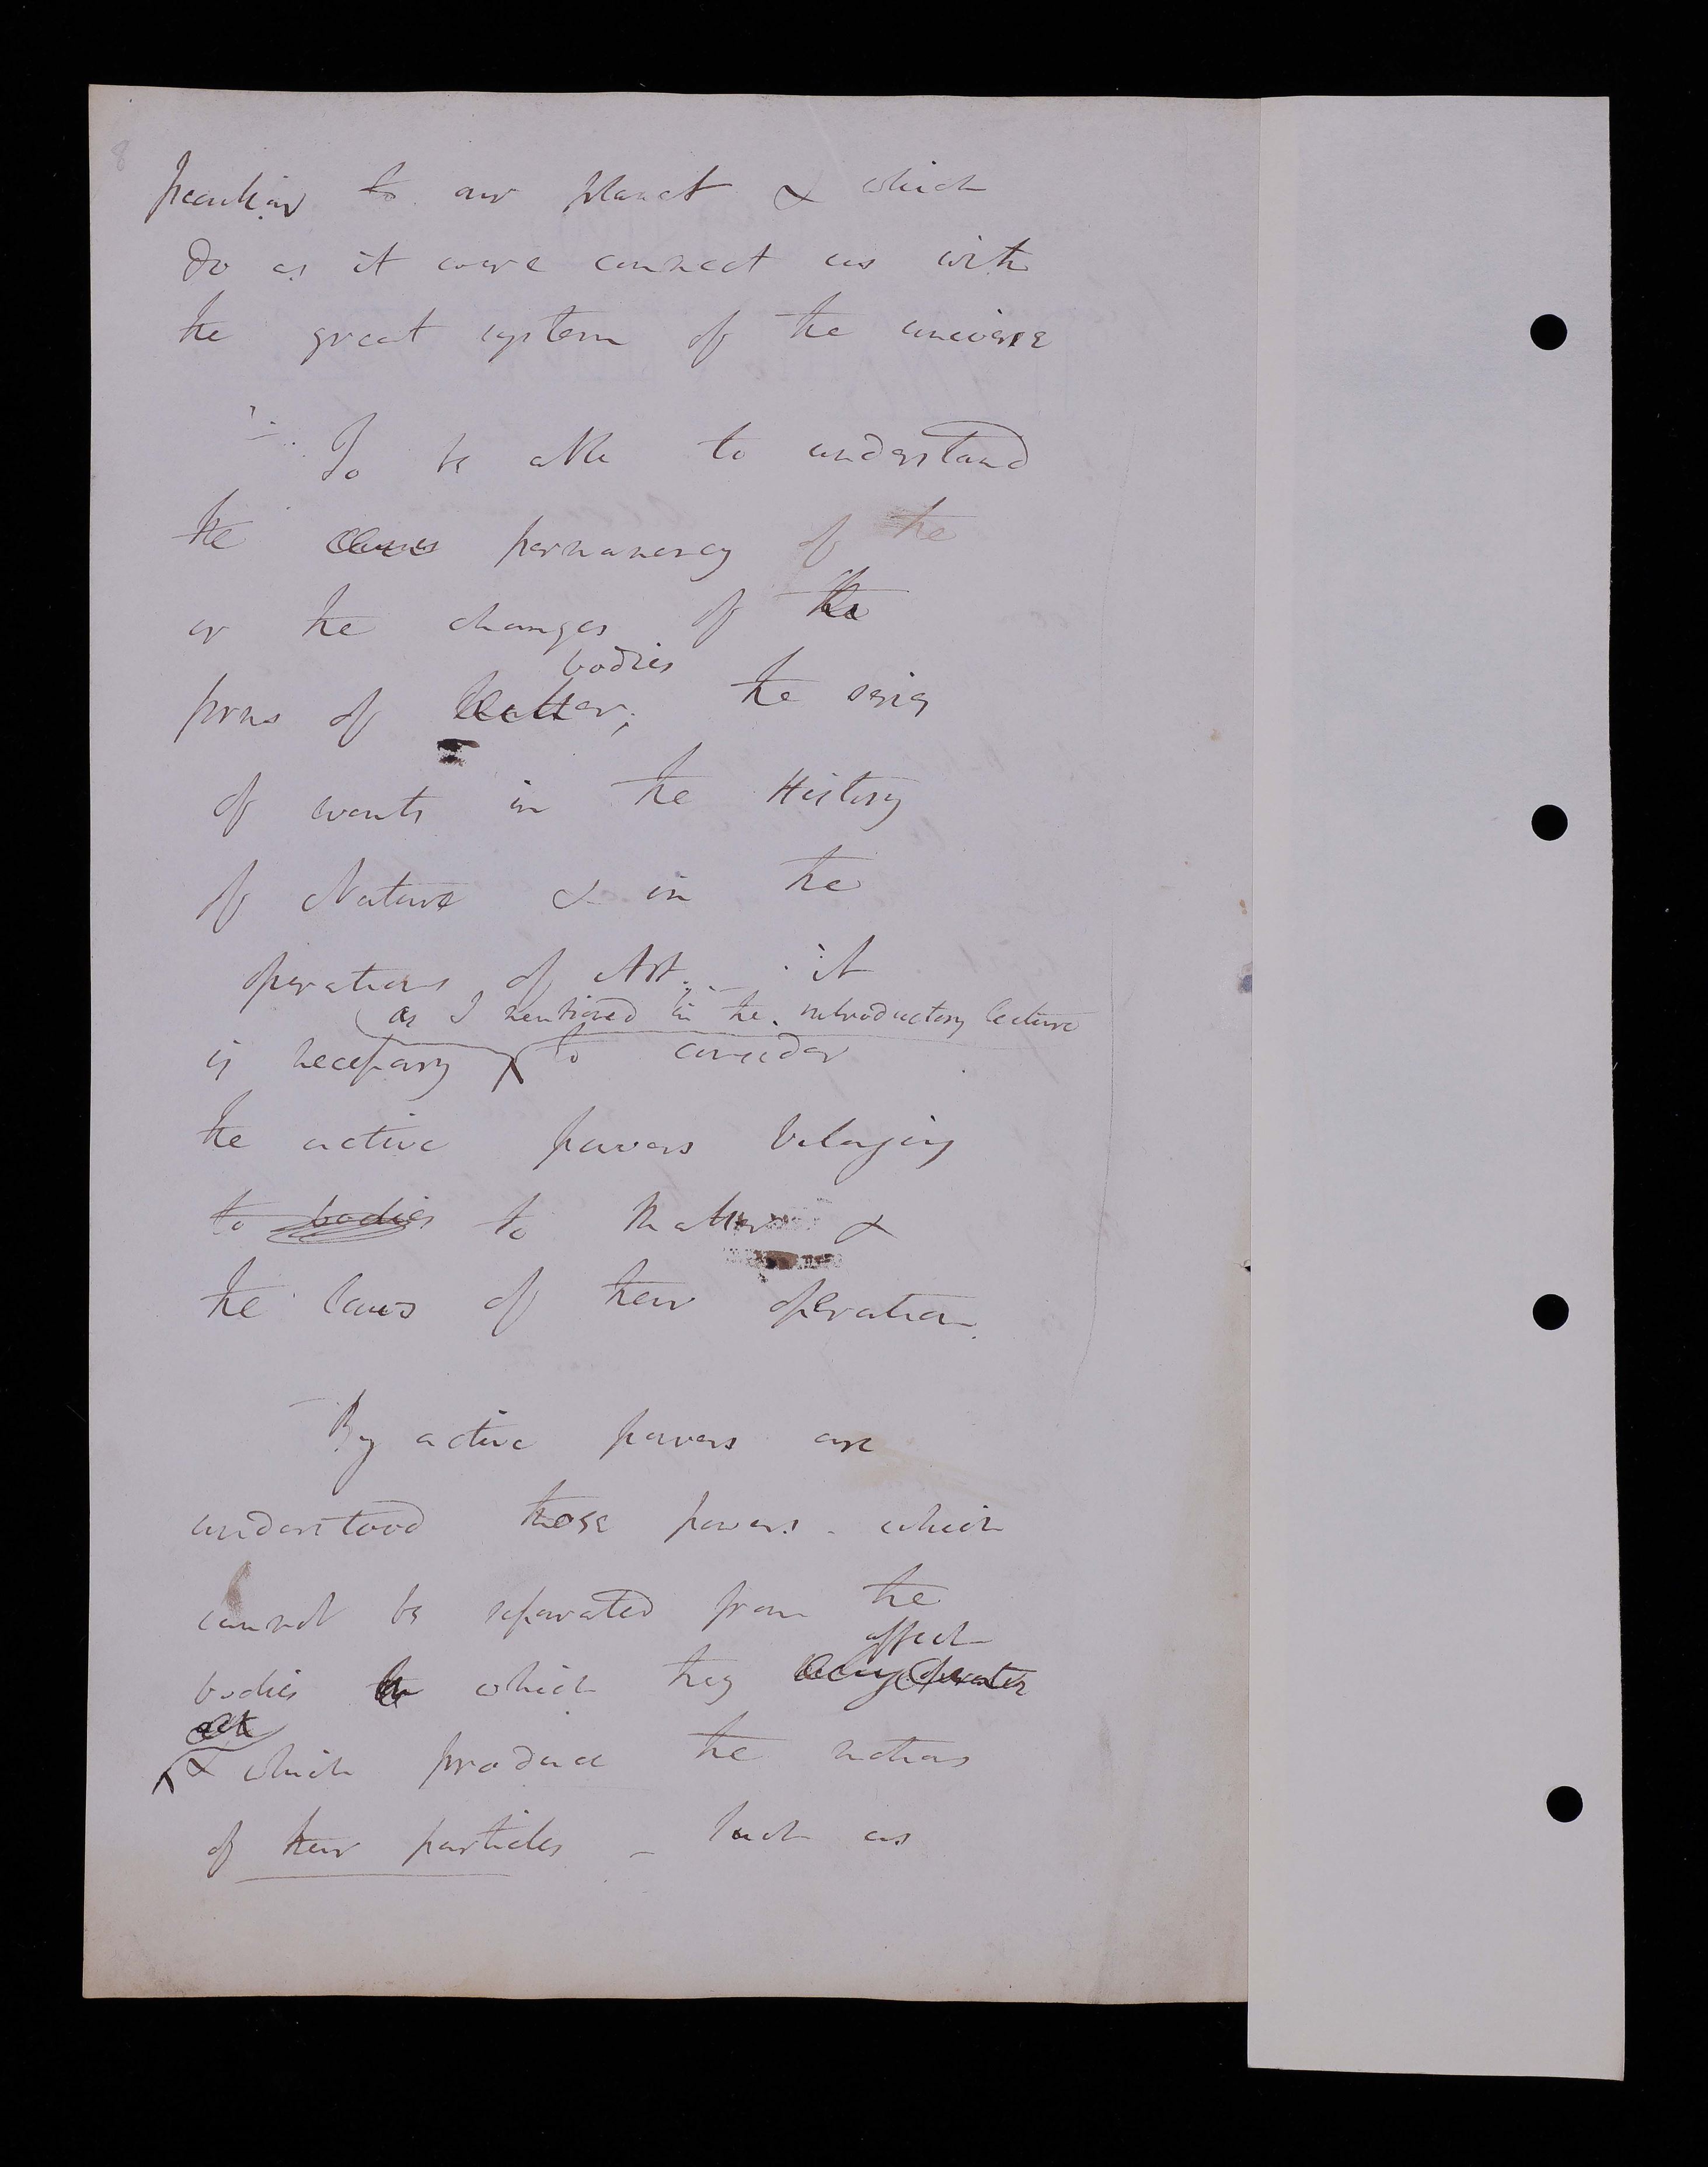 8
peculiar to our planet & which
do as it were connect us with
the great system of the universe
To be able to understand
the causes permanency of the
or the changes of the
bodies
forms of matter; the series
of events in the History
of Nature & in the
operations of Art. - it
as I mentioned in the introductory lecture
is necessary to consider
the active powers belonging
to bodies to Matter &
the laws of their operation.
By active powers are
understood those powers - which
cannot be separated from the
affect
bodies which they operate
act
& which produce the motions
of their particles - Such as